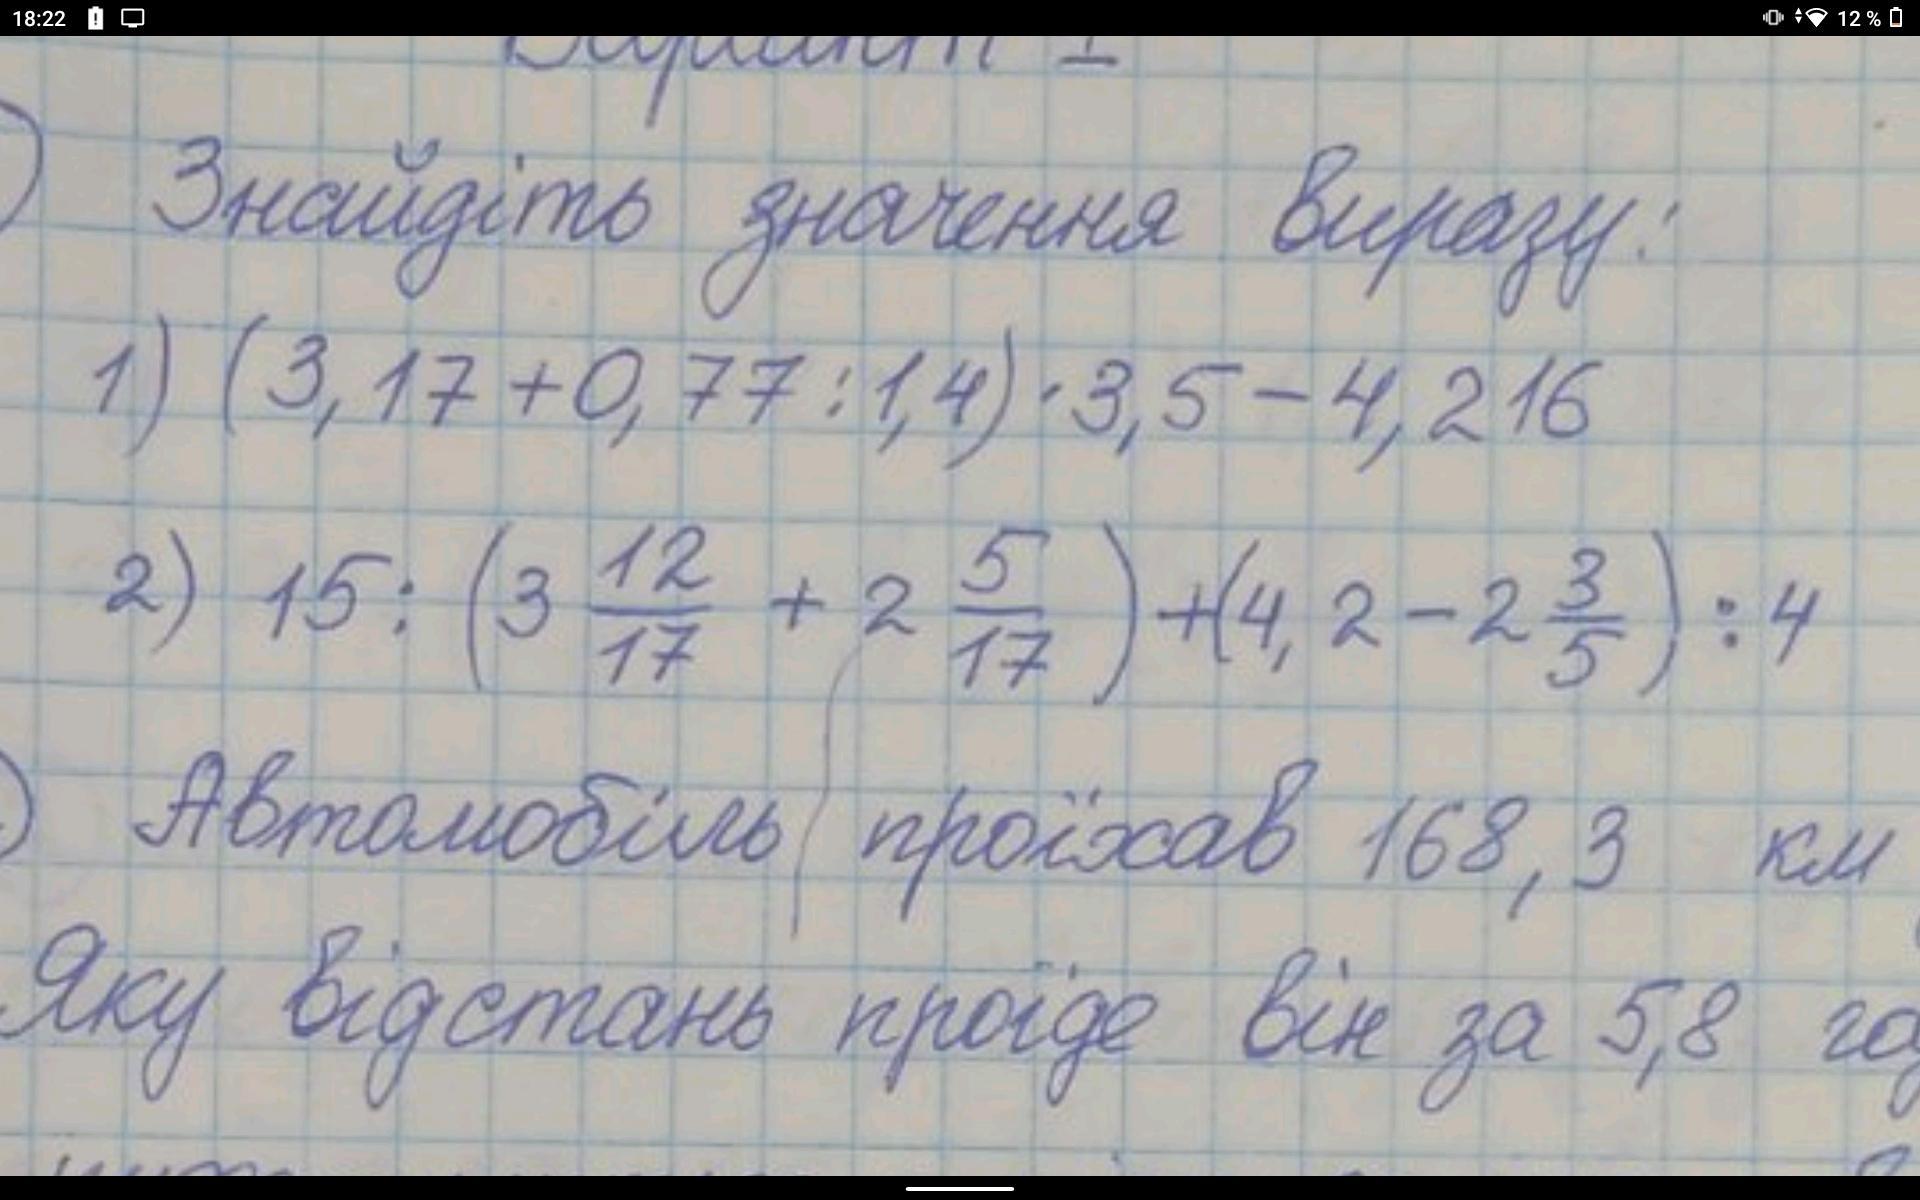 18:22 12 %
Варіант I
Знайдіть значення виразу:
1) (3,17+0,77:1,4)·3,5-4,216
2) 15:(3 12/17 + 2 5/17)+(4,2-2 3/5):4
Автомобіль проїхав 168,3 км
Яку відстань проїде він за 5,8 год